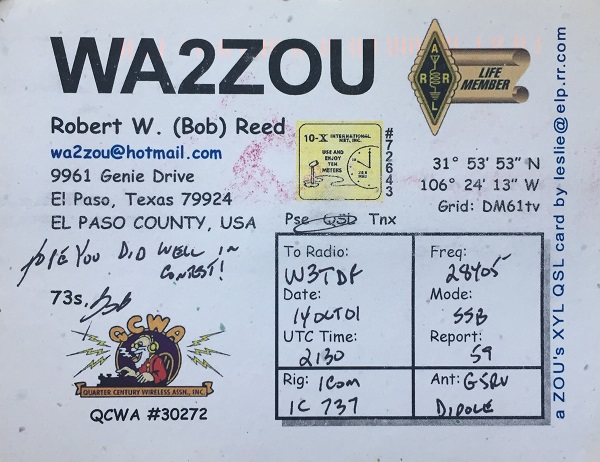 WA2ZOU
ARRL
LIFE
MEMBER
Robert W. (Bob) Reed
wa2zou@hotmail.com
9961 Genie Drive
El Paso, Texas 79924
EL PASO COUNTY, USA
10-X INTERNATIONAL
NET, INC.
USE AND
ENJOY
TEN
METERS
#72643
31° 53' 53" N
106° 24' 13" W
Grid: DM61tv
Pse QSL Tnx
HOPE YOU DID WELL IN
CONTEST!
73s, Bob
QCWA
QUARTER CENTURY WIRELESS ASSN., INC.
QCWA #30272
To Radio:
W3TDF
Date:
14 OCT 01
UTC Time:
2130
Rig: ICOM
IC 737
Freq:
28405
Mode:
SSB
Report:
59
Ant: G5RV
DIPOLE
a ZOU's XYL QSL card by leslie@elp.rr.com